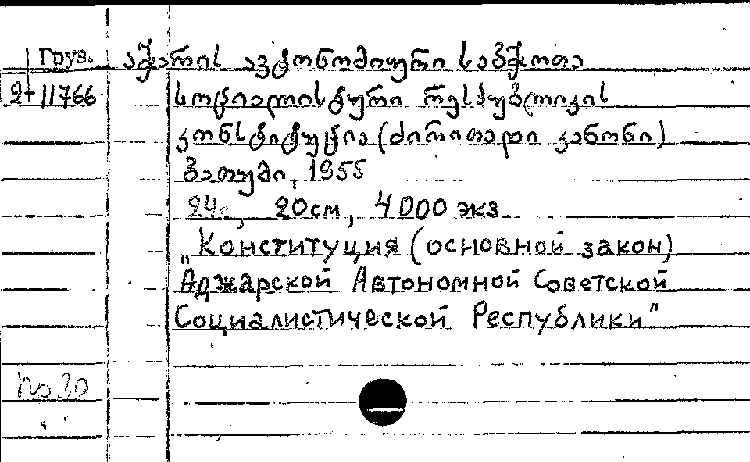 Груз. აჭარის ავტონომიური საბჭოთა
2-11766 სოციალისტური რესპუბლიკის
კონსტიტუცია (ძირითადი კანონი)
ბათუმი, 1955
24с, 20см, 4000 экз
„Конституция (основной закон)
Аджарской Автономной Советской
Социалистической Республики"